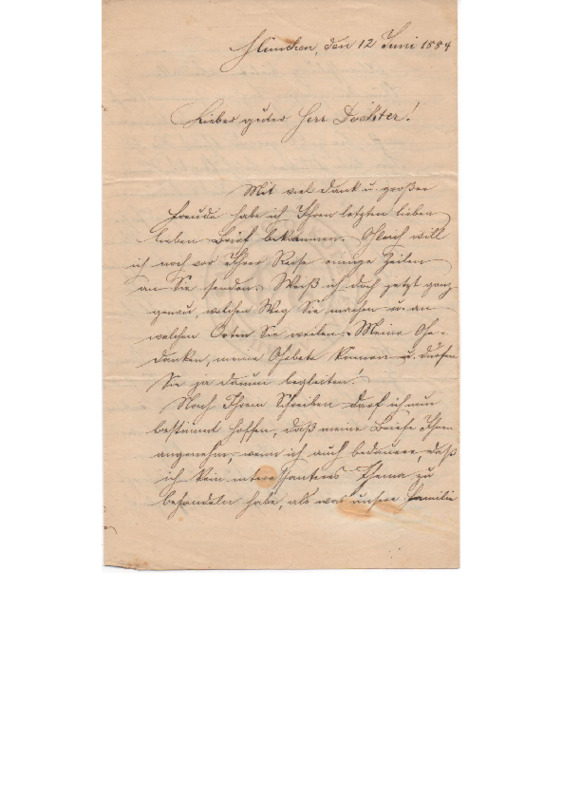 München, den 12 Juni 1884
Lieber guter Herr Dockter!
Mit viel Dank u. großer
Freude habe ich Ihren letzten lieben
lieben Brief bekommen. Gleich will
ich noch vor Ihrer Reise einige Zeilen
an Sie senden. Weiß ich doch jetzt ganz
genau, welchen Weg Sie machen u. an
welchen Orten Sie weilen. Meine Ge-
danken, meine Gebete können u. dürfen
Sie ja darum begleiten!
Nach Ihrem Schreiben darf ich nun
bestimmt hoffen, daß meine Briefe Ihnen
angenehm, wenn ich auch bedauere, daß
ich kein interessanteres Thema zu
behandeln habe, als was unsere Familie